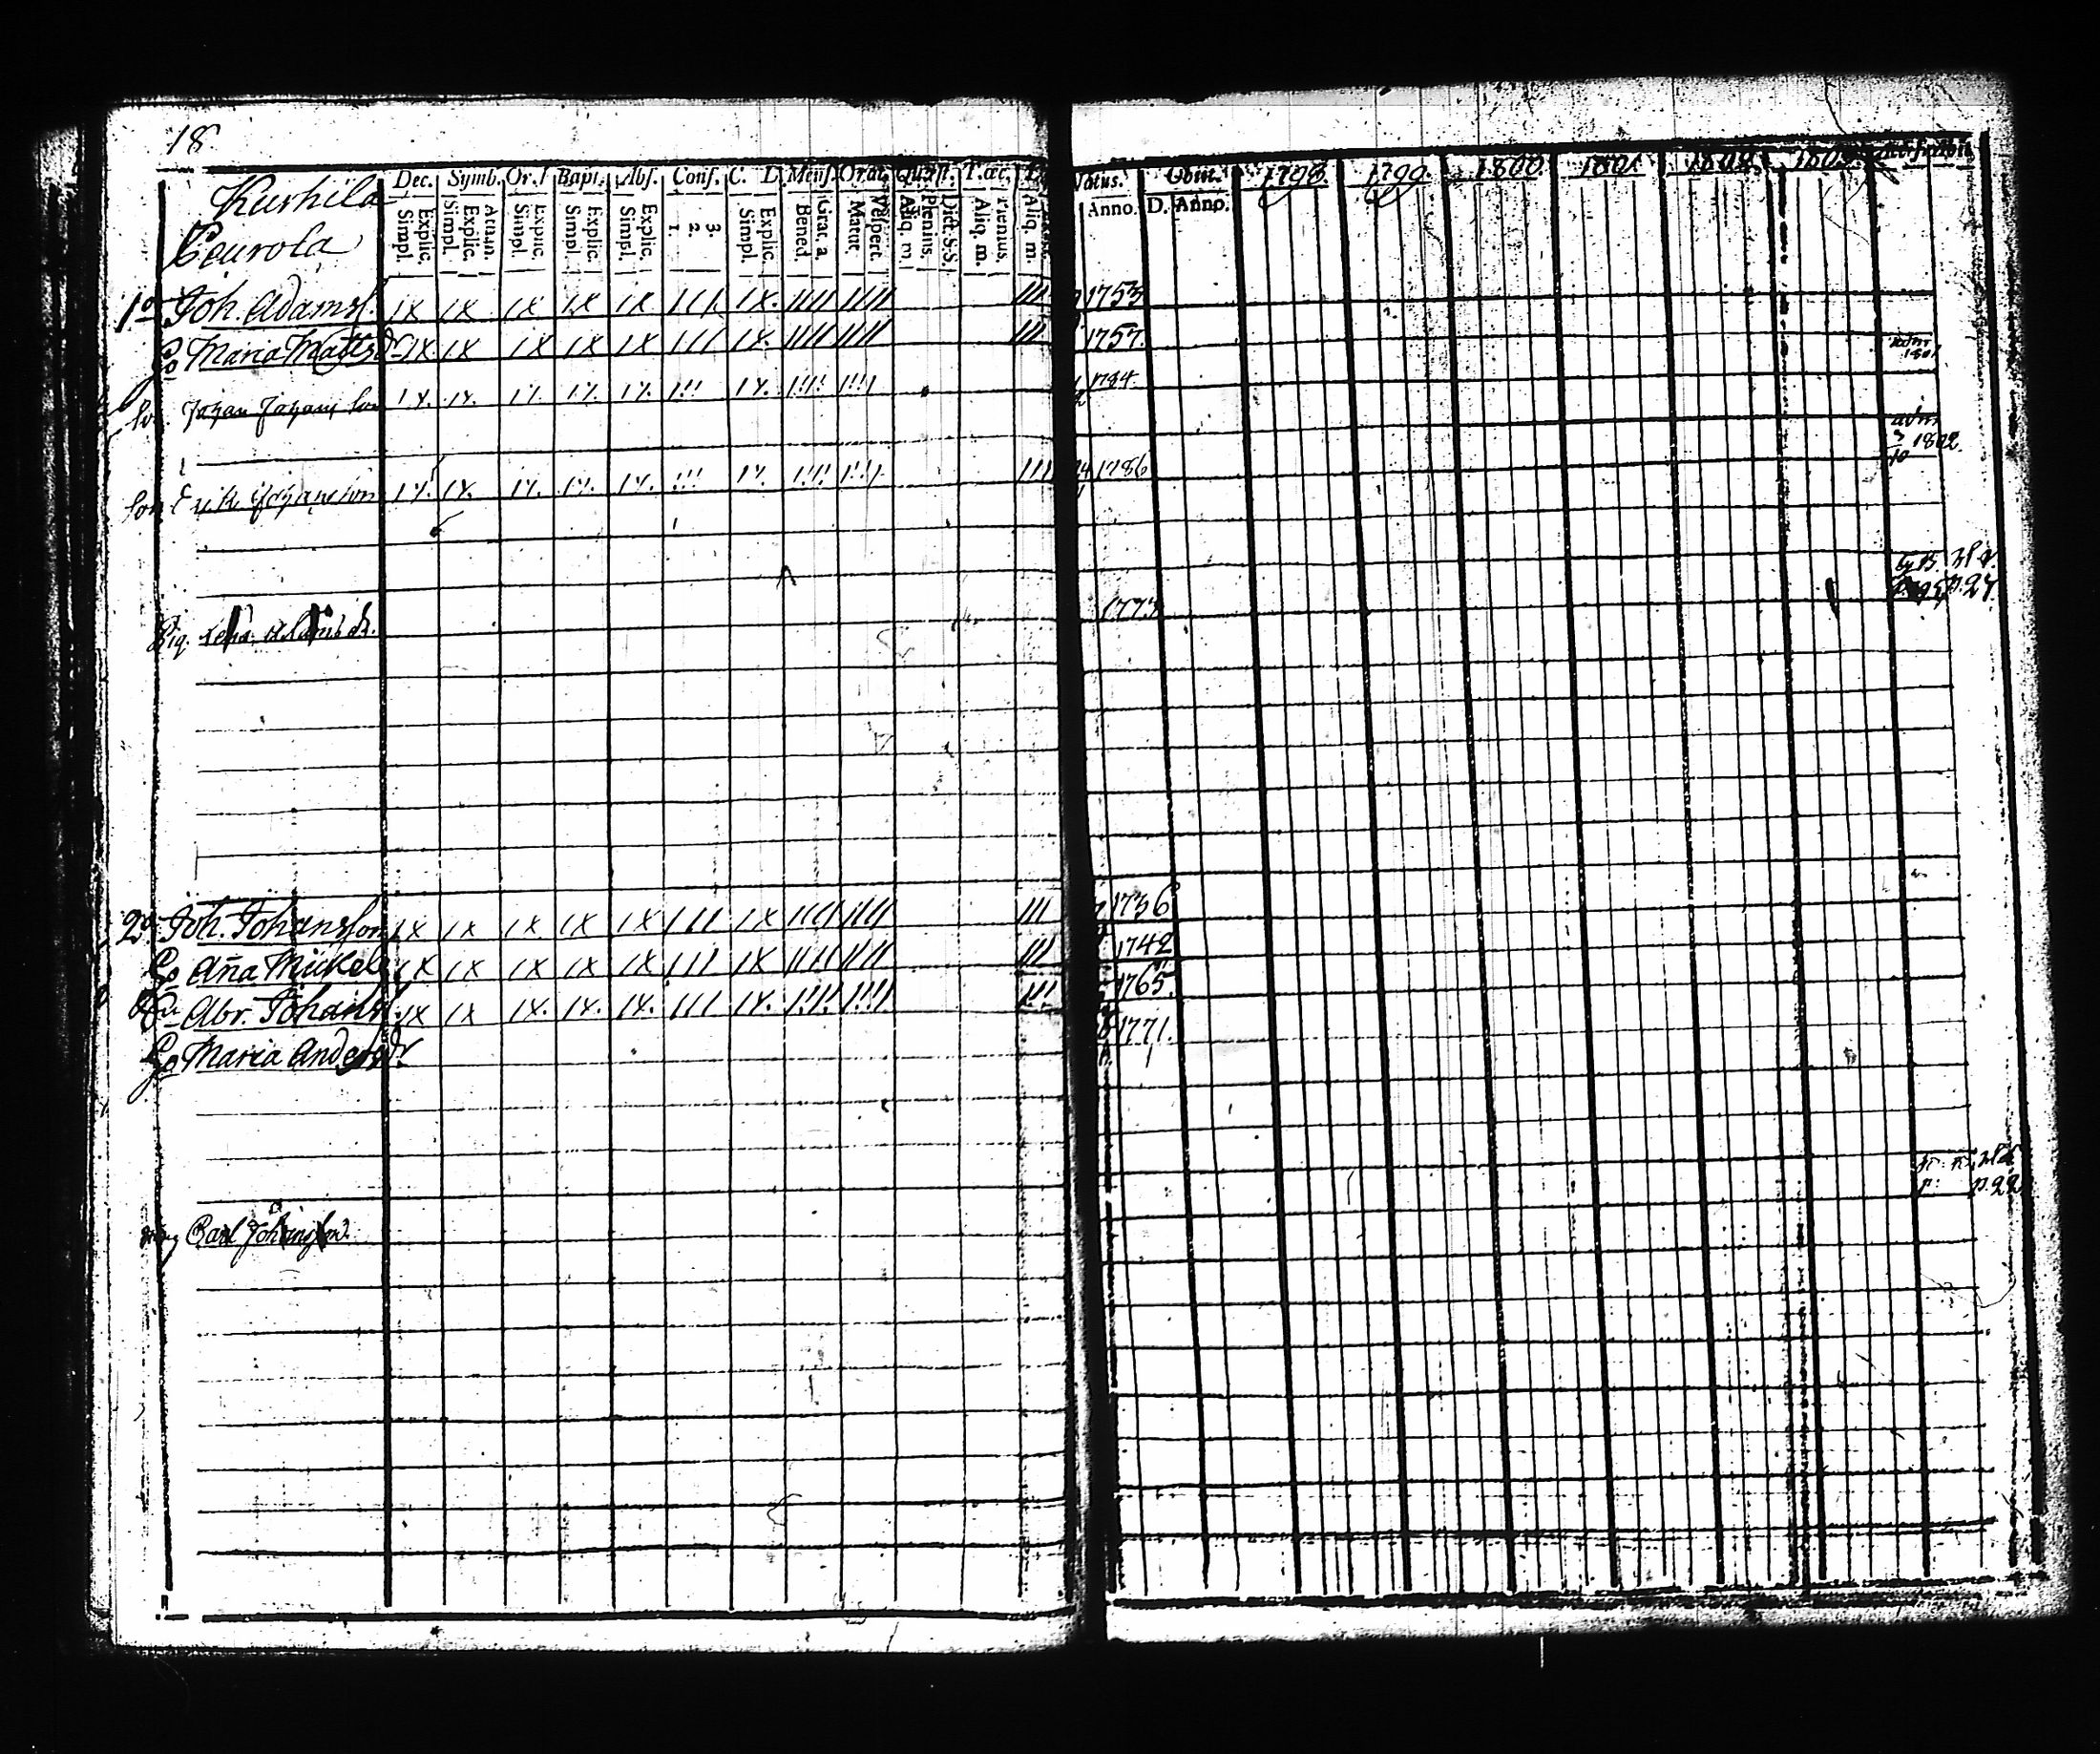 18
Kurkila
Peurola
Dec. Symb. Or. Bapt. Abs. Conf. C. D. Mens. Orat. Quæst. Natus. Obiit. 1798 1799 1800 1801 1802 1803
Explic. Simpl. Athan. Explic. Simpl. Explic. Simpl. Explic. Simpl. Explic. Simpl. 3. 2. 1. Explic. Simpl. Grat. a. Bened. Vespert. Matut. Dict. S.S. Plenius. Aliq. m. Plenius. Aliq. m. Aliq. m. Anno. D. Anno.
1o Joh. Adamss. IX IX IX IX IX III IX. IIII IIII III 1753
Maria Matts d. IX IX IX IX IX III IX. IIII IIII III 1757.
adm 1801
Son Johan Johansson IX. IX. IX. IX. IX. III IX. IIII IIII 1784.
adm 1802
Son Erik Johansson IX. IX. IX. IX. IX. III IX. IIII IIII III 1786
p. 24
Pig. Lena Adamsdr.
2o Joh. Johansson IX IX IX IX IX III IX IIII IIII III 1736
Aña Mickels IX IX IX IX IX III IX IIII IIII III 1742
Abr. Johanss. IX IX IX. IX. IX. III IX. IIII IIII III 1765.
Maria Anders dr 1771.
p. 22
Carl Johansson